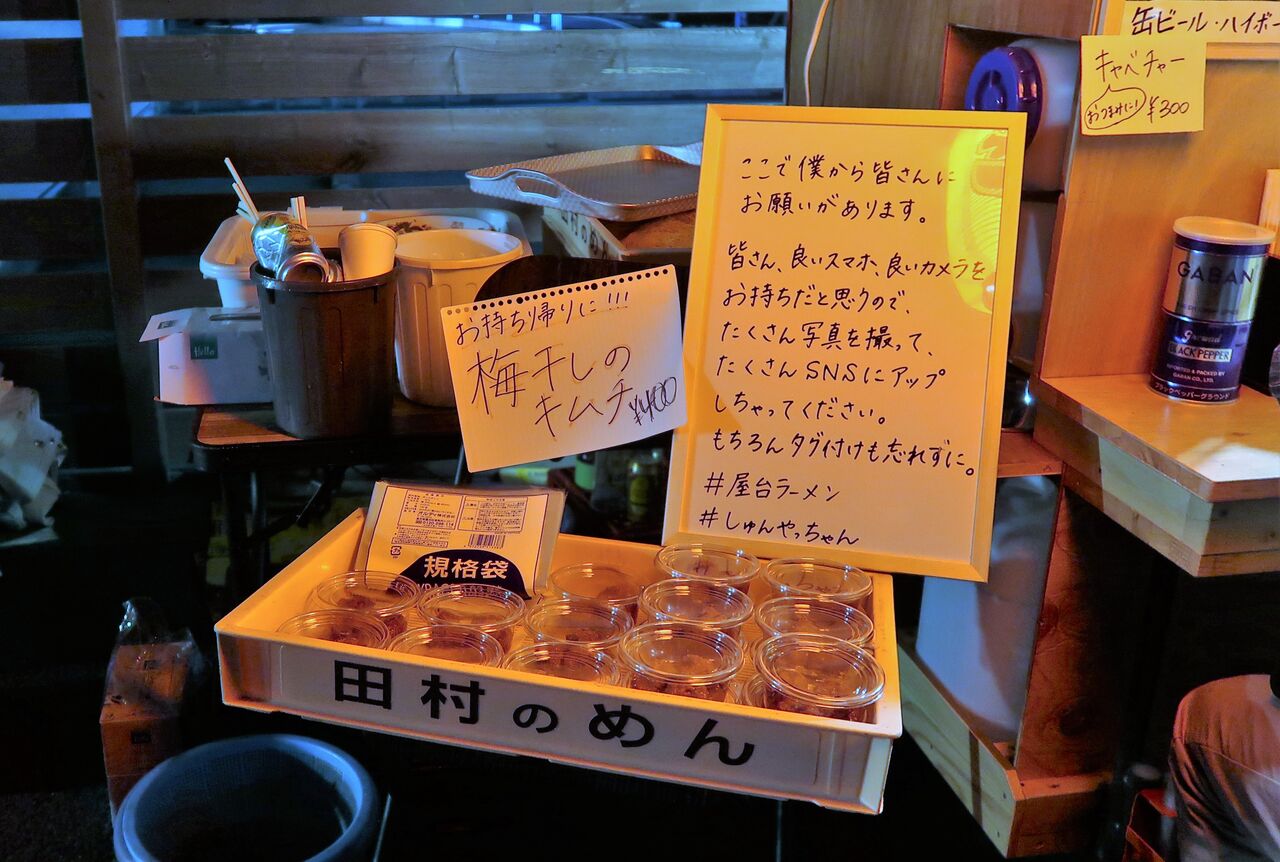 缶ビール・ハイボー
キャベチャー
おつまみに!
¥300
ここで僕から皆さんに
お願いがあります。
皆さん、良いスマホ、良いカメラを
お持ちだと思うので、
たくさん写真を撮って、
たくさんSNSにアップ
しちゃってください。
もちろんタグ付けも忘れずに。
#屋台ラーメン
#しゅんやっちゃん
お持ち帰りに!!!
梅干しの
キムチ
¥400
田村のめん
Hello
GABAN
Ground
BLACK PEPPER
IMPORTED & PACKED BY
GABAN CO., LTD.
ブラックペッパーグラウンド
規格袋
田村のめん